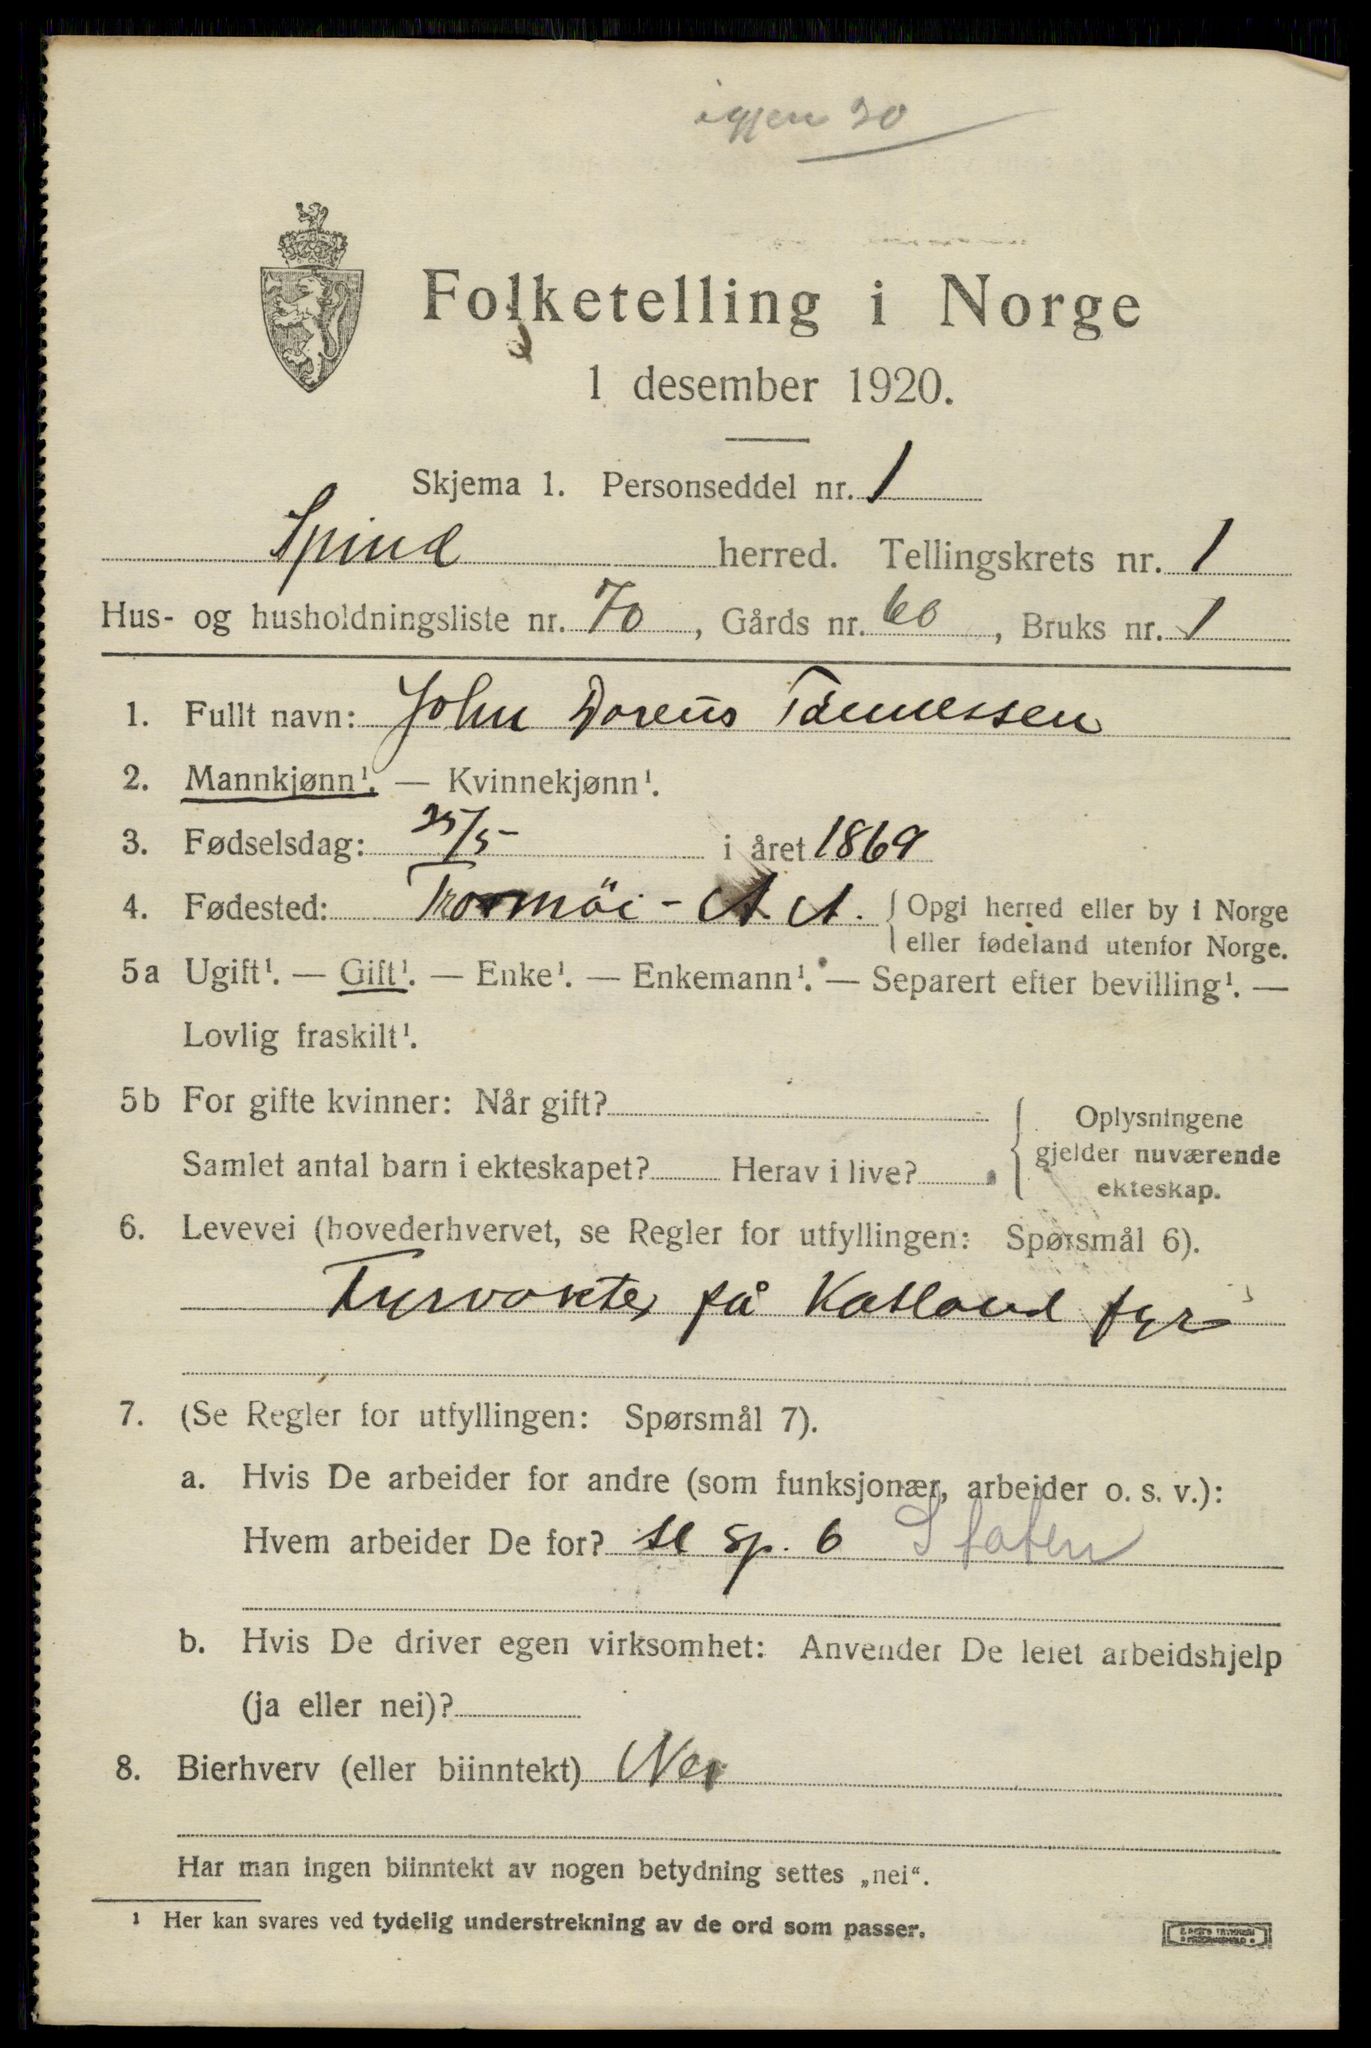 igjen 30
Folketelling i Norge
1 desember 1920.
Skjema 1. Personseddel nr. 1
Spind herred. Tellingskrets nr. 1
Hus- og husholdningsliste nr. 70, Gårds nr. 60, Bruks nr. 1
1. Fullt navn: John Dorenus Tønnessen
2. Mannkjønn¹. — Kvinnekjønn¹.
3. Fødselsdag: 25/5- i året 1869
4. Fødested: Tromöi - A A. Opgi herred eller by i Norge
eller fødeland utenfor Norge.
5a Ugift¹. — Gift¹. — Enke¹. — Enkemann¹. — Separert efter bevilling¹. —
Lovlig fraskilt¹.
5b For gifte kvinner: Når gift? Oplysningene
Samlet antal barn i ekteskapet? Herav i live? gjelder nuværende
ekteskap.
6. Levevei (hovederhvervet, se Regler for utfyllingen: Spørsmål 6).
Fyrvokter på Katland fyr
7. (Se Regler for utfyllingen: Spørsmål 7).
a. Hvis De arbeider for andre (som funksjonær, arbeider o. s. v.):
Hvem arbeider De for? se sp. 6 Staten
b. Hvis De driver egen virksomhet: Anvender De leiet arbeidshjelp
(ja eller nei)?
8. Bierhverv (eller biinntekt) Nei
Har man ingen biinntekt av nogen betydning settes „nei“.
¹ Her kan svares ved tydelig understrekning av de ord som passer.